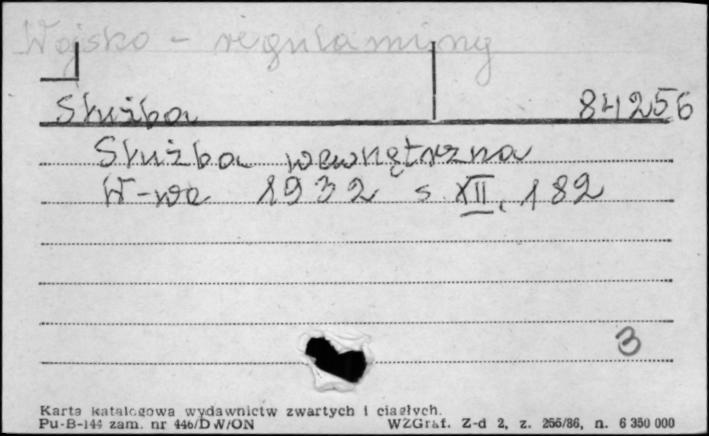 Wojsko - regulaminy
Służba 84256
Służba wewnętrzna
W-wa 1932 s. XII, 182
3
Karta katalogowa wydawnictw zwartych i ciągłych.
Pu-B-144 zam. nr 446/DW/ON WZGraf. Z-d 2, z. 266/86, n. 6 350 000